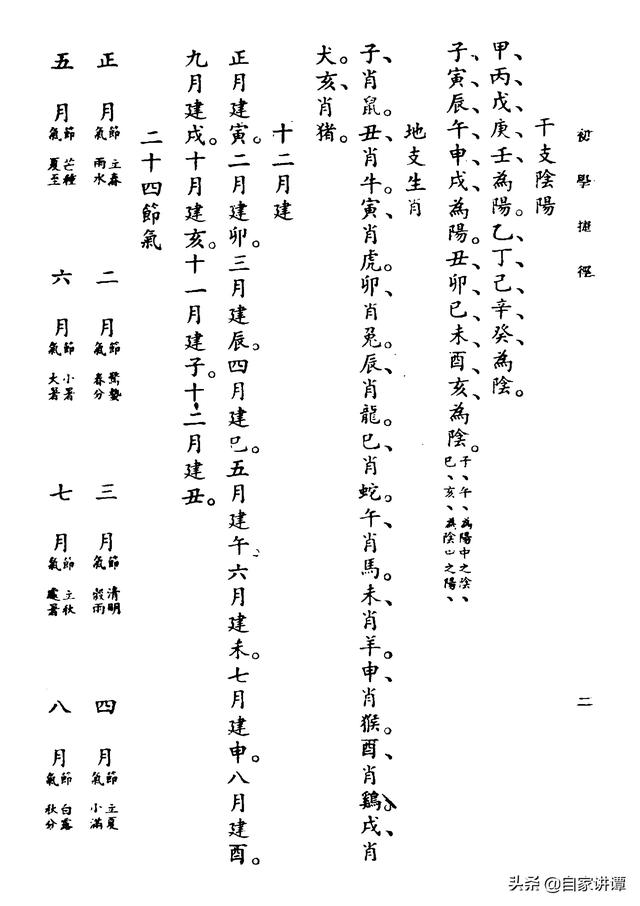 初學捷徑
二
干支陰陽
甲、丙、戊、庚、壬、為陽。乙、丁、己、辛、癸、為陰。
子、寅、辰、午、申、戌、為陽。丑、卯、巳、未、酉、亥、為陰。子、午、為陽中之陰、巳、亥、為陰中之陽、
地支生肖
子、肖鼠。丑、肖牛。寅、肖虎。卯、肖兔。辰、肖龍。巳、肖蛇。午、肖馬。未、肖羊。申、肖猴。酉、肖鷄。戌、肖
犬。亥、肖猪。
十二月建
正月建寅。二月建卯。三月建辰。四月建巳。五月建午。六月建未。七月建申。八月建酉。
九月建戌。十月建亥。十一月建子。十二月建丑。
二十四節氣
正月 節立春 氣雨水 二月 節驚蟄 氣春分 三月 節清明 氣穀雨 四月 節立夏 氣小滿
五月 節芒種 氣夏至 六月 節小暑 氣大暑 七月 節立秋 氣處暑 八月 節白露 氣秋分
头条 @自家讲谭